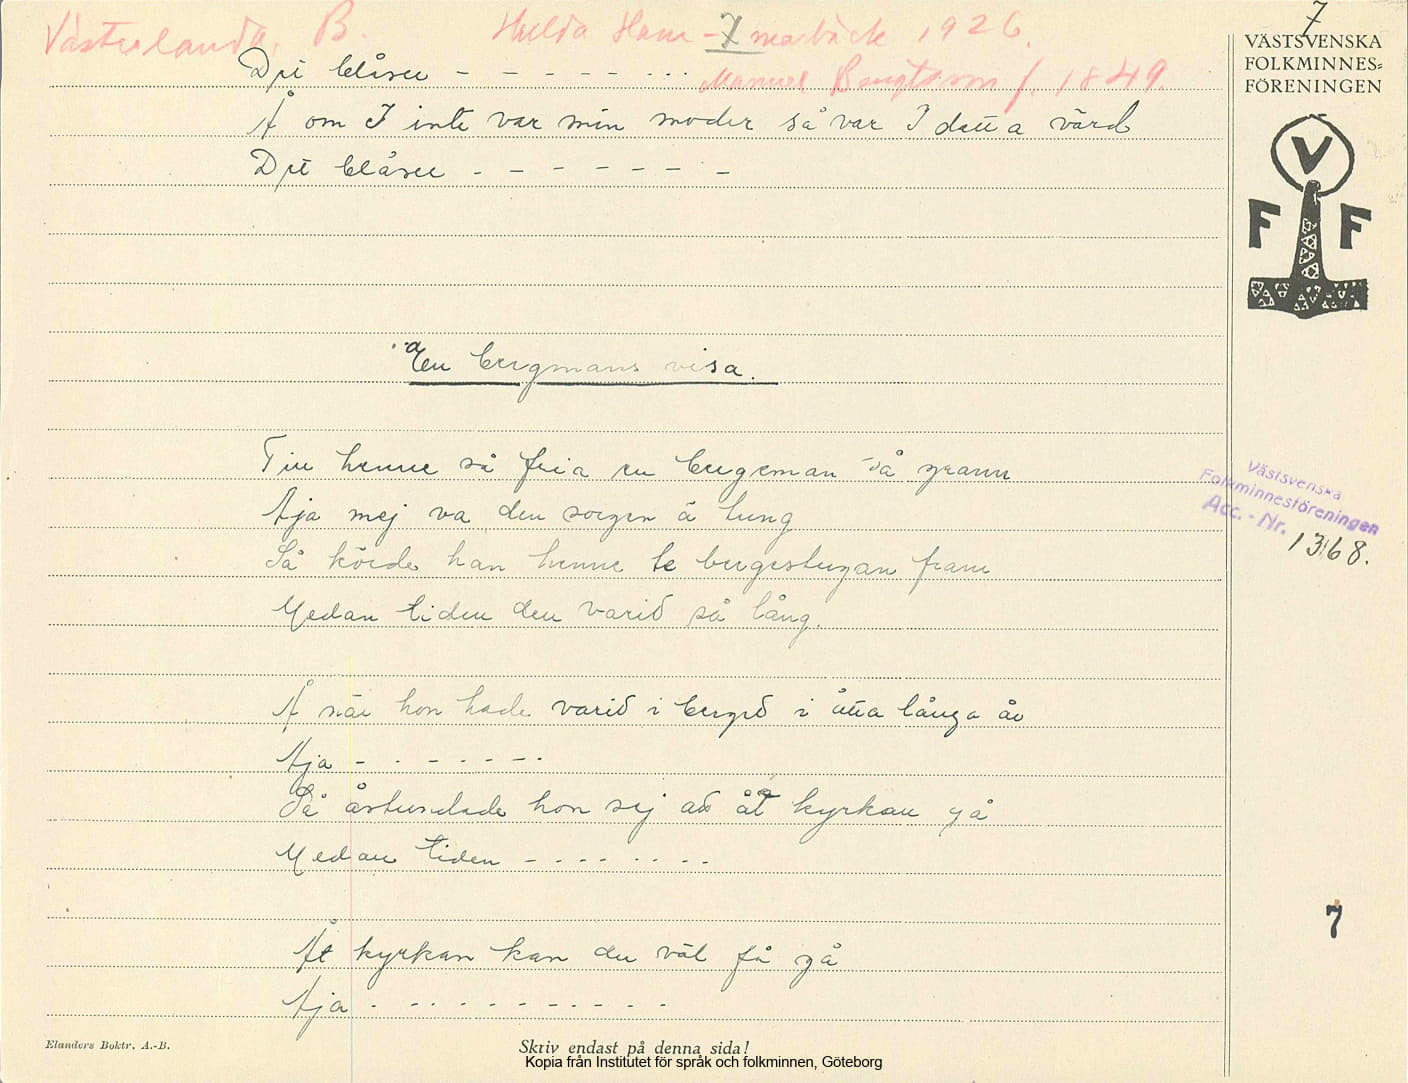 Västerlanda, B. Hulda Hammarbäck 1926.
7
7
VÄSTSVENSKA
FOLKMINNES=
FÖRENINGEN
Det blåser - - - - - . . .
Manuel Bengtsson f. 1849.
Å om I inte var min moder så var I detta värd
Det blåser - - - - - - -
V
F F
a
En bergmans visa.
Till henne så fria en bergeman så grann
Aja mej va den sorgen ä tung
Så körde han henne te bergestugan fram
Medan tiden den varid så lång.
Västsvenska
Folkminnesföreningen
Acc. - Nr. 1368.
Å när hon hade varid i berged i åtta långa år
Aja - - - - - - -
Så åstundade hon sej ad åt kyrkan gå
Medan tiden - - - - - - - -
7
Åt kyrkan kan du väl få gå
Aja - - - - - - - - - - -
Elanders Boktr. A.-B.
Skriv endast på denna sida!
Kopia från Institutet för språk och folkminnen, Göteborg